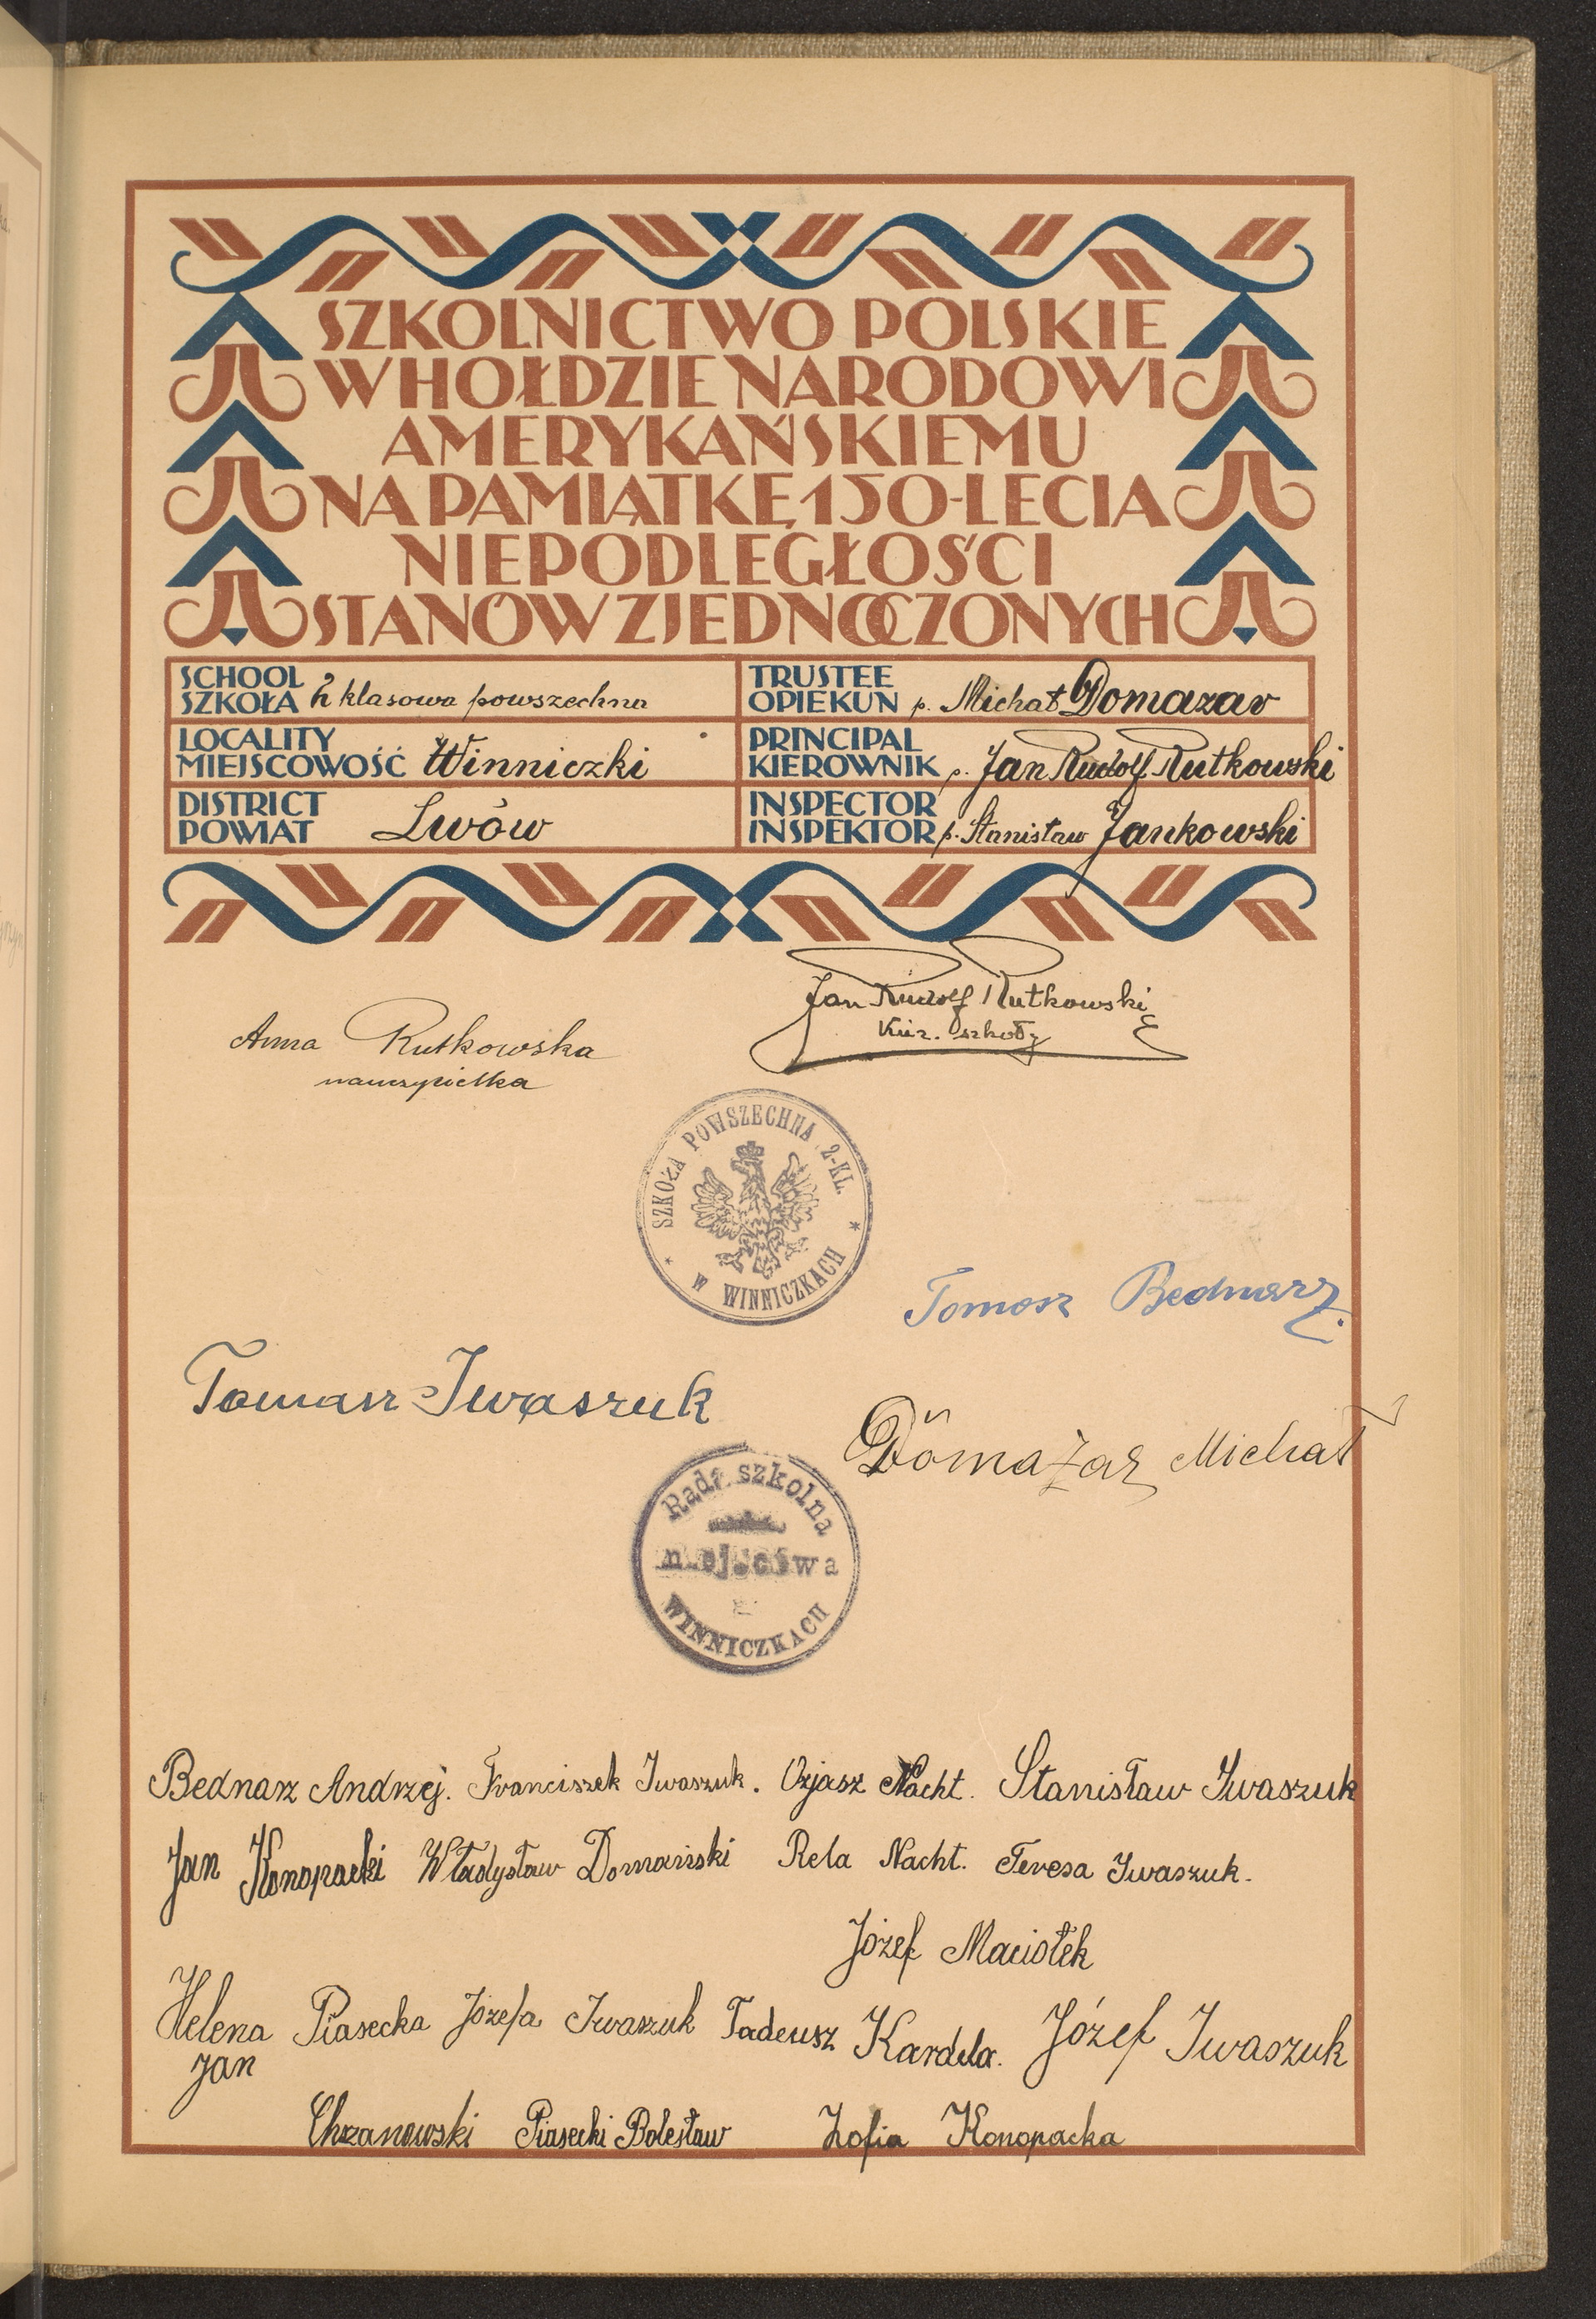 SZKOLNICTWO POLSKIE
W HOŁDZIE NARODOWI
AMERYKAŃSKIEMU
NA PAMIĄTKĘ 150-LECIA
NIEPODLEGŁOŚCI
STANÓW ZJEDNOCZONYCH
SCHOOL
SZKOŁA 2 klasowa powszechna
TRUSTEE
OPIEKUN p. Michał Domazar
LOCALITY
MIEJSCOWOŚĆ Winniczki
PRINCIPAL
KIEROWNIK p. Jan Rudolf Rutkowski
DISTRICT
POWIAT Lwów
INSPECTOR
INSPEKTOR p. Stanisław Jankowski
Jan Rudolf Rutkowski
Kier. szkoły
Anna Rutkowska
nauczycielka
SZKOŁA POWSZECHNA 2-KL.
* W WINNICZKACH *
Tomasz Bednarz.
Tomasz Iwaszuk
Domażar Michał
Rada szkolna
miejscowa
WINNICZKACH
Bednarz Andrzej. Franciszek Iwaszuk. Ozjasz Nacht. Stanisław Iwaszuk
Jan Konopacki Władysław Domański Rela Nacht. Teresa Iwaszuk.
Józef Maciołek
Helena Piasecka Józefa Iwaszuk Tadeusz Kardela. Józef Iwaszuk
Jan
Chrzanowski Piasecki Bolesław Zofia Konopacka